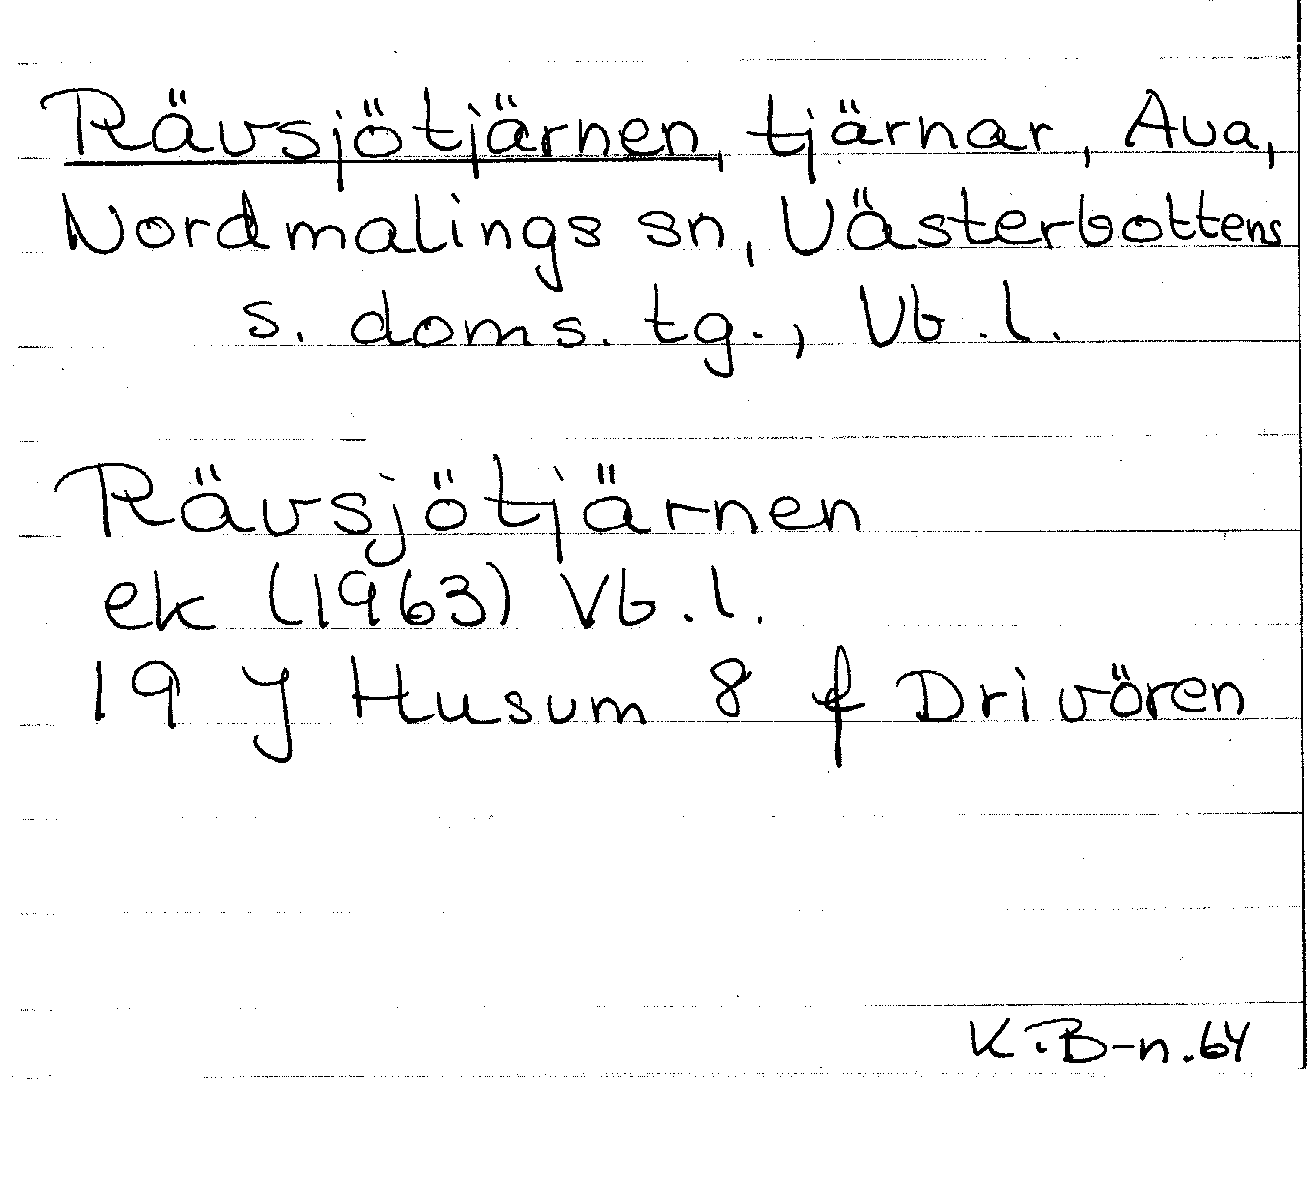 Rävsjötjärnen, tjärnar, Ava,
Nordmalings sn, Västerbottens
s. doms. tg., Vb. l.
Rävsjötjärnen
ek (1963) Vb. l.
19 J Husum 8 f Drivören
K.B-n.64